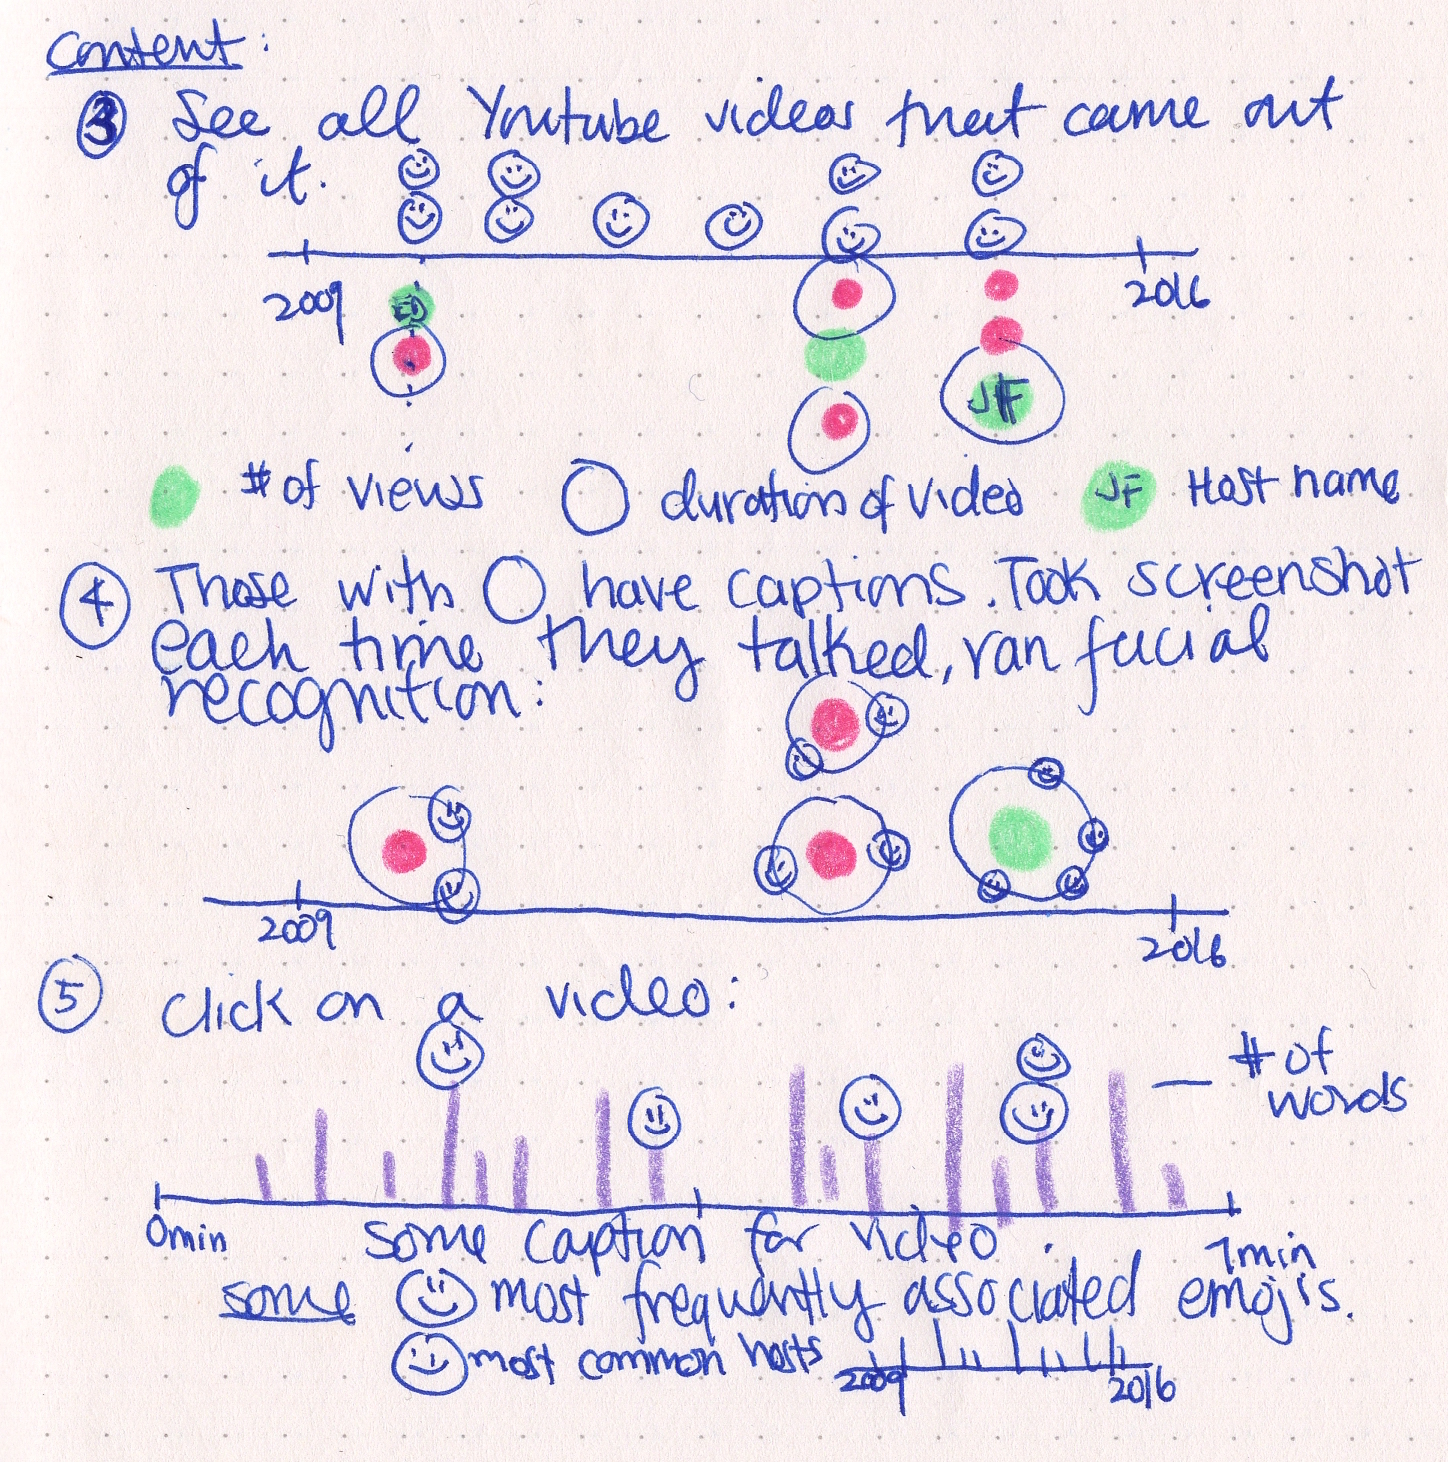 Content:
3 See all Youtube videos that came out
of it.
2009
2016
ED
JF
# of views
duration of video
JF Host name
4 Those with O have captions. Took screenshot
each time they talked, ran facial
recognition:
2009
2016
5 Click on a video:
# of
words
0min
some caption for video.
7min
some most frequently associated emojis.
most common hosts
2009
2016